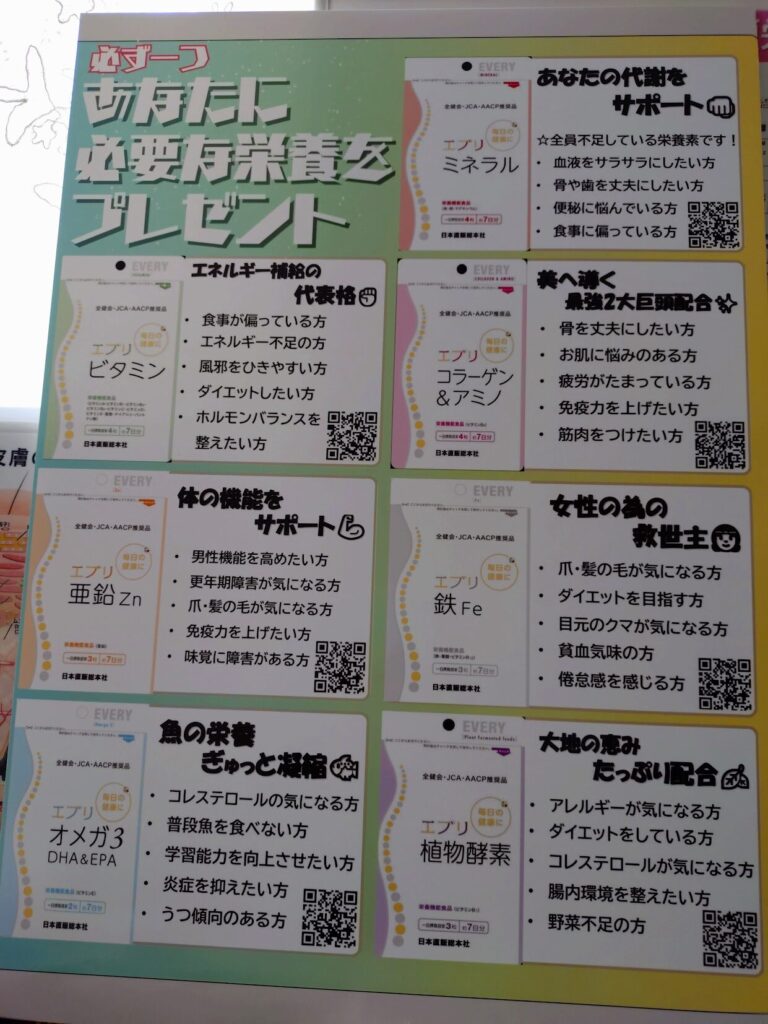 必ず一つ
あなたに
必要な栄養を
プレゼント
EVERY
全健会・JCA・AACP推奨品
毎日の
健康に
エブリ
ミネラル
一日摂取目安4粒 約7日分
日本直販総本社
あなたの代謝を
サポート
☆全員不足している栄養素です!
・ 血液をサラサラにしたい方
・ 骨や歯を丈夫にしたい方
・ 便秘に悩んでいる方
・ 食事に偏っている方
EVERY
全健会・JCA・AACP推奨品
毎日の
健康に
エブリ
ビタミン
栄養機能食品
一日摂取目安4粒 約7日分
日本直販総本社
エネルギー補給の
代表格
・ 食事が偏っている方
・ エネルギー不足の方
・ 風邪をひきやすい方
・ ダイエットしたい方
・ ホルモンバランスを
整えたい方
EVERY
全健会・JCA・AACP推奨品
毎日の
健康に
エブリ
コラーゲン
&アミノ
一日摂取目安4粒 約7日分
日本直販総本社
美へ導く
最強2大巨頭配合
・ 骨を丈夫にしたい方
・ お肌に悩みのある方
・ 疲労がたまっている方
・ 免疫力を上げたい方
・ 筋肉をつけたい方
EVERY
全健会・JCA・AACP推奨品
毎日の
健康に
エブリ
亜鉛 Zn
栄養機能食品(亜鉛)
一日摂取目安3粒 約7日分
日本直販総本社
体の機能を
サポート
・ 男性機能を高めたい方
・ 更年期障害が気になる方
・ 爪・髪の毛が気になる方
・ 免疫力を上げたい方
・ 味覚に障害がある方
EVERY
全健会・JCA・AACP推奨品
毎日の
健康に
エブリ
鉄 Fe
栄養機能食品
一日摂取目安3粒 約7日分
日本直販総本社
女性の為の
救世主
・ 爪・髪の毛が気になる方
・ ダイエットを目指す方
・ 目元のクマが気になる方
・ 貧血気味の方
・ 倦怠感を感じる方
EVERY
全健会・JCA・AACP推奨品
毎日の
健康に
エブリ
オメガ3
DHA&EPA
栄養機能食品(ビタミンE)
一日摂取目安2粒 約7日分
日本直販総本社
魚の栄養
ぎゅっと凝縮
・ コレステロールの気になる方
・ 普段魚を食べない方
・ 学習能力を向上させたい方
・ 炎症を抑えたい方
・ うつ傾向のある方
EVERY
(Plant Fermented foods)
全健会・JCA・AACP推奨品
毎日の
健康に
エブリ
植物酵素
一日摂取目安3粒 約7日分
日本直販総本社
大地の恵み
たっぷり配合
・ アレルギーが気になる方
・ ダイエットをしている方
・ コレステロールが気になる方
・ 腸内環境を整えたい方
・ 野菜不足の方
皮膚の